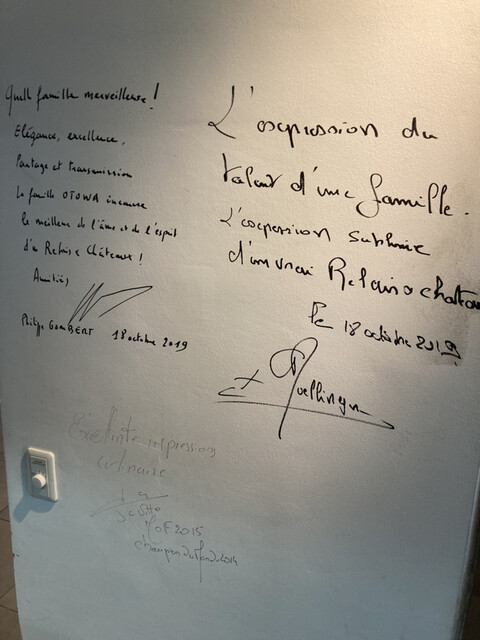 Quelle famille merveilleuse !
Elégance, excellence,
Partage et transmission
La famille OTOWA incarne
le meilleur de l'âme et de l'esprit
d'un Relais & Châteaux !
Amitiés
Philippe GOMBERT 18 octobre 2019
L'expression du
talent d'une famille.
L'expression sublime
d'un vrai Relais & chateau
le 18 octobre 2019
Excellente impression
culinaire
MOF 2015
champion du Monde 2014